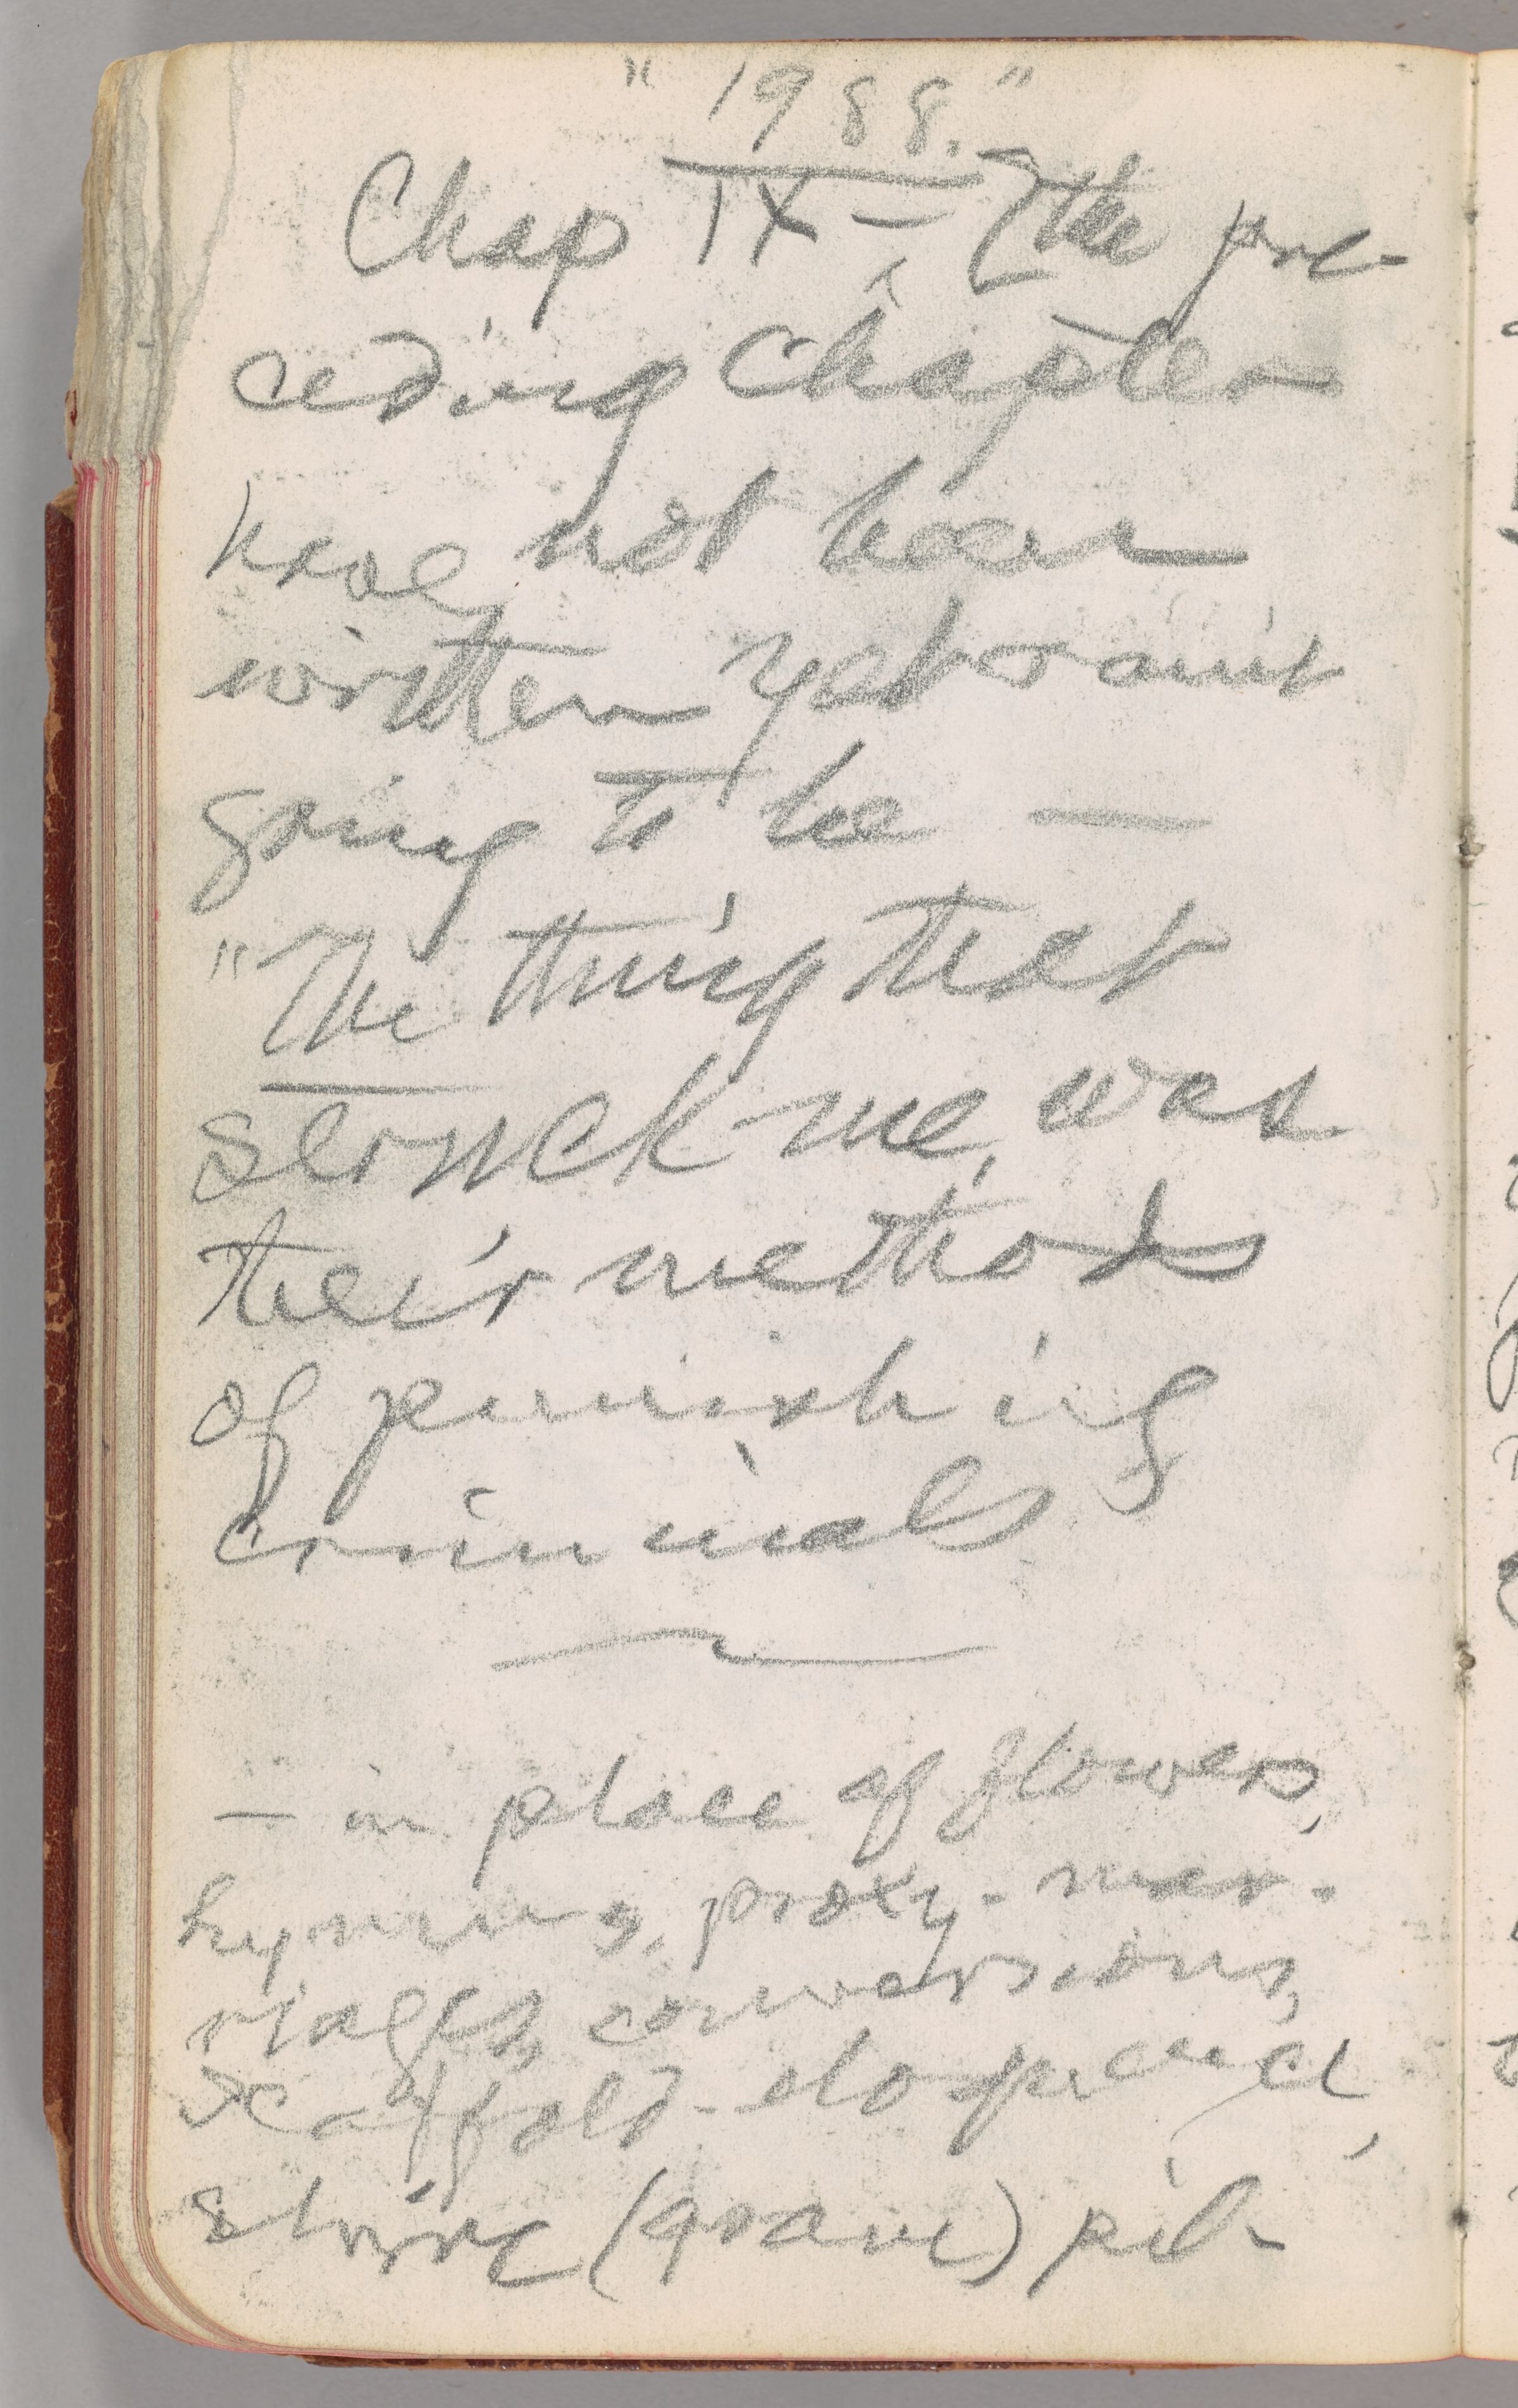 "1988."
Chap IX — [the pre-
ceding chapters
have not been
written yet & aint
going to be —
"The thing that
struck me, was
their methods
of punishing
criminals
— in place of flowers,
hymns, proxy-mar-
riages, conversions,
scaffold-eloquence,
shrine (grave) pil-